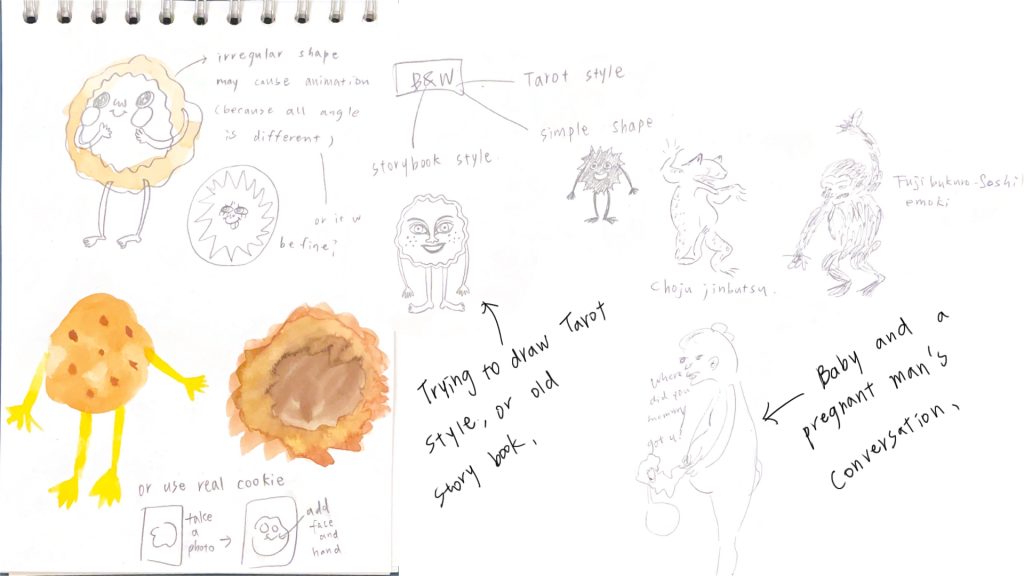 irregular shape
may cause animation
(because all angle
is different,
or it w
be fine?
B&W
Tarot style
simple shape
storybook style
Fujibukuro-Soshi
emaki
Choju jinbutsu.
Trying to draw Tarot
style, or old
story book,
Where
did you
mommy
got u?
Baby and a
pregnant man's
conversation,
or use real cookie
take
a
photo
add
face
and
hand